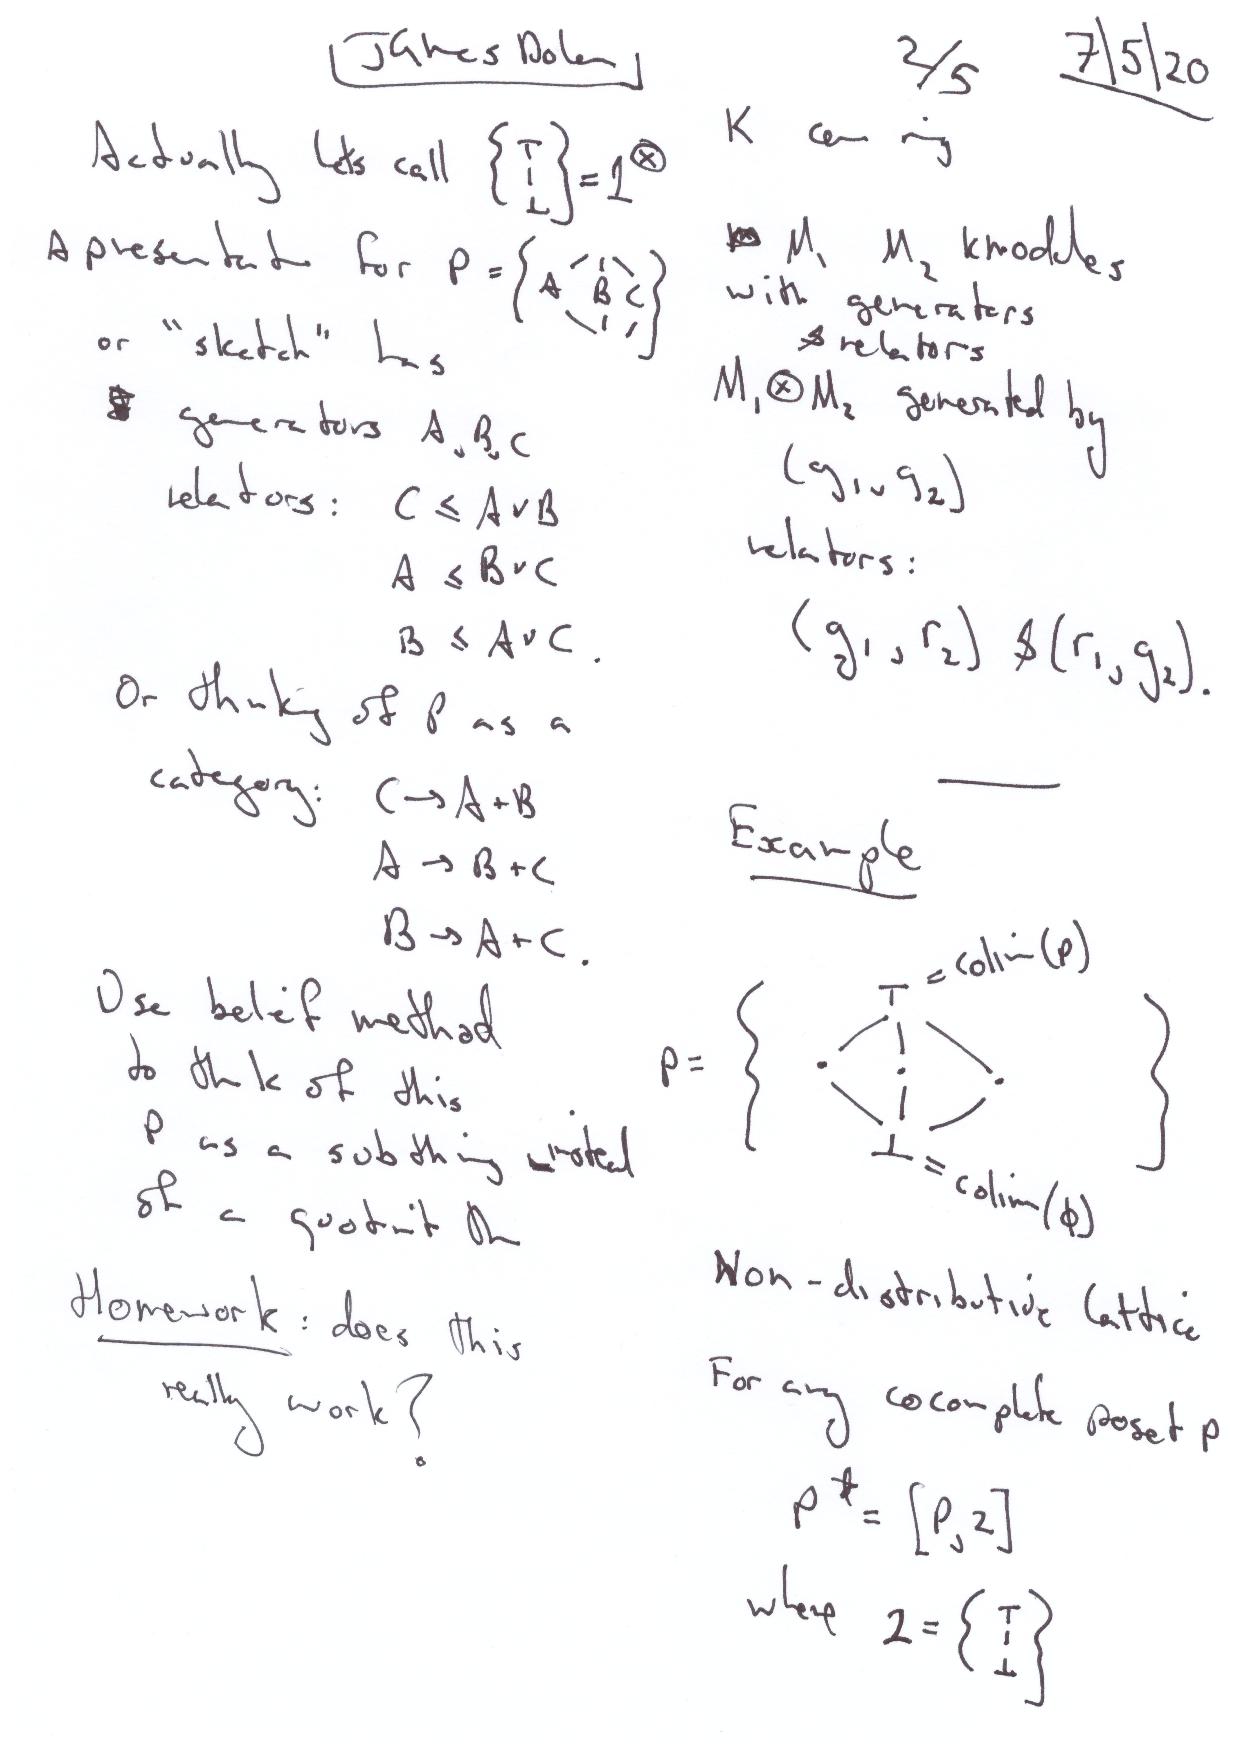 James Dolan
2/5
7/5/20
Actually lets call {⊤ | ⊥} = 1^⊗
A presentatn for P = {A B C}
or "sketch" has
generators A, B, C
relators: C ≤ A ∨ B
A ≤ B ∨ C
B ≤ A ∨ C.
Or thinking of P as a
category: C → A + B
A → B + C
B → A + C.
Use belief method
to think of this
P as a subthing instead
of a quotient
Homework: does this
really work?
K com ring
M₁ M₂ k modules
with generators
& relators
M₁ ⊗ M₂ generated by
(g₁, g₂)
relators:
(g₁, r₂) & (r₁, g₂).
Example
⊤ = colim(P)
P = { }
⊥ = colim(ϕ)
Non-distributive lattice
For any cocomplete poset P
P* = [P, 2]
where 2 = {⊤ | ⊥}